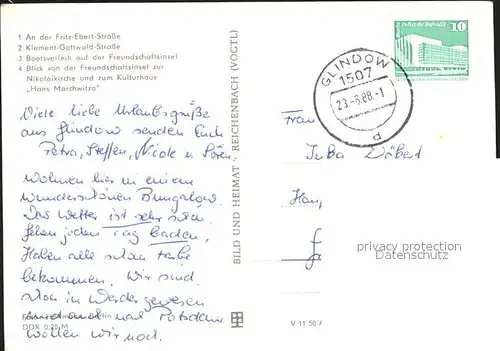 1 An der Fritz-Ebert-Straße
2 Klement-Gottwald-Straße
3 Bootsverleih auf der Freundschaftsinsel
4 Blick von der Freundschaftsinsel zur
Nikolaikirche und zum Kulturhaus
„Hans Marchwitza"
Viele liebe Urlaubsgrüße
aus Glindow senden Euch
Petra, Steffen, Nicole u. Sören.
Wohnen hier in einem
wunderschönen Bungalow.
Das Wetter ist sehr schön.
Gehen jeden Tag baden.
Haben alle schon Farbe
bekommen. Wir sind
schon in Werder gewesen
und auch mal Potsdam
wollen wir noch.
DDR 0,25 M
BILD UND HEIMAT REICHENBACH (VOGTL)
GLINDOW
1507
23.-6.88.-1
d
10
Frau
Juba
Hau
V 11 50 7
privacy protection
Datenschutz